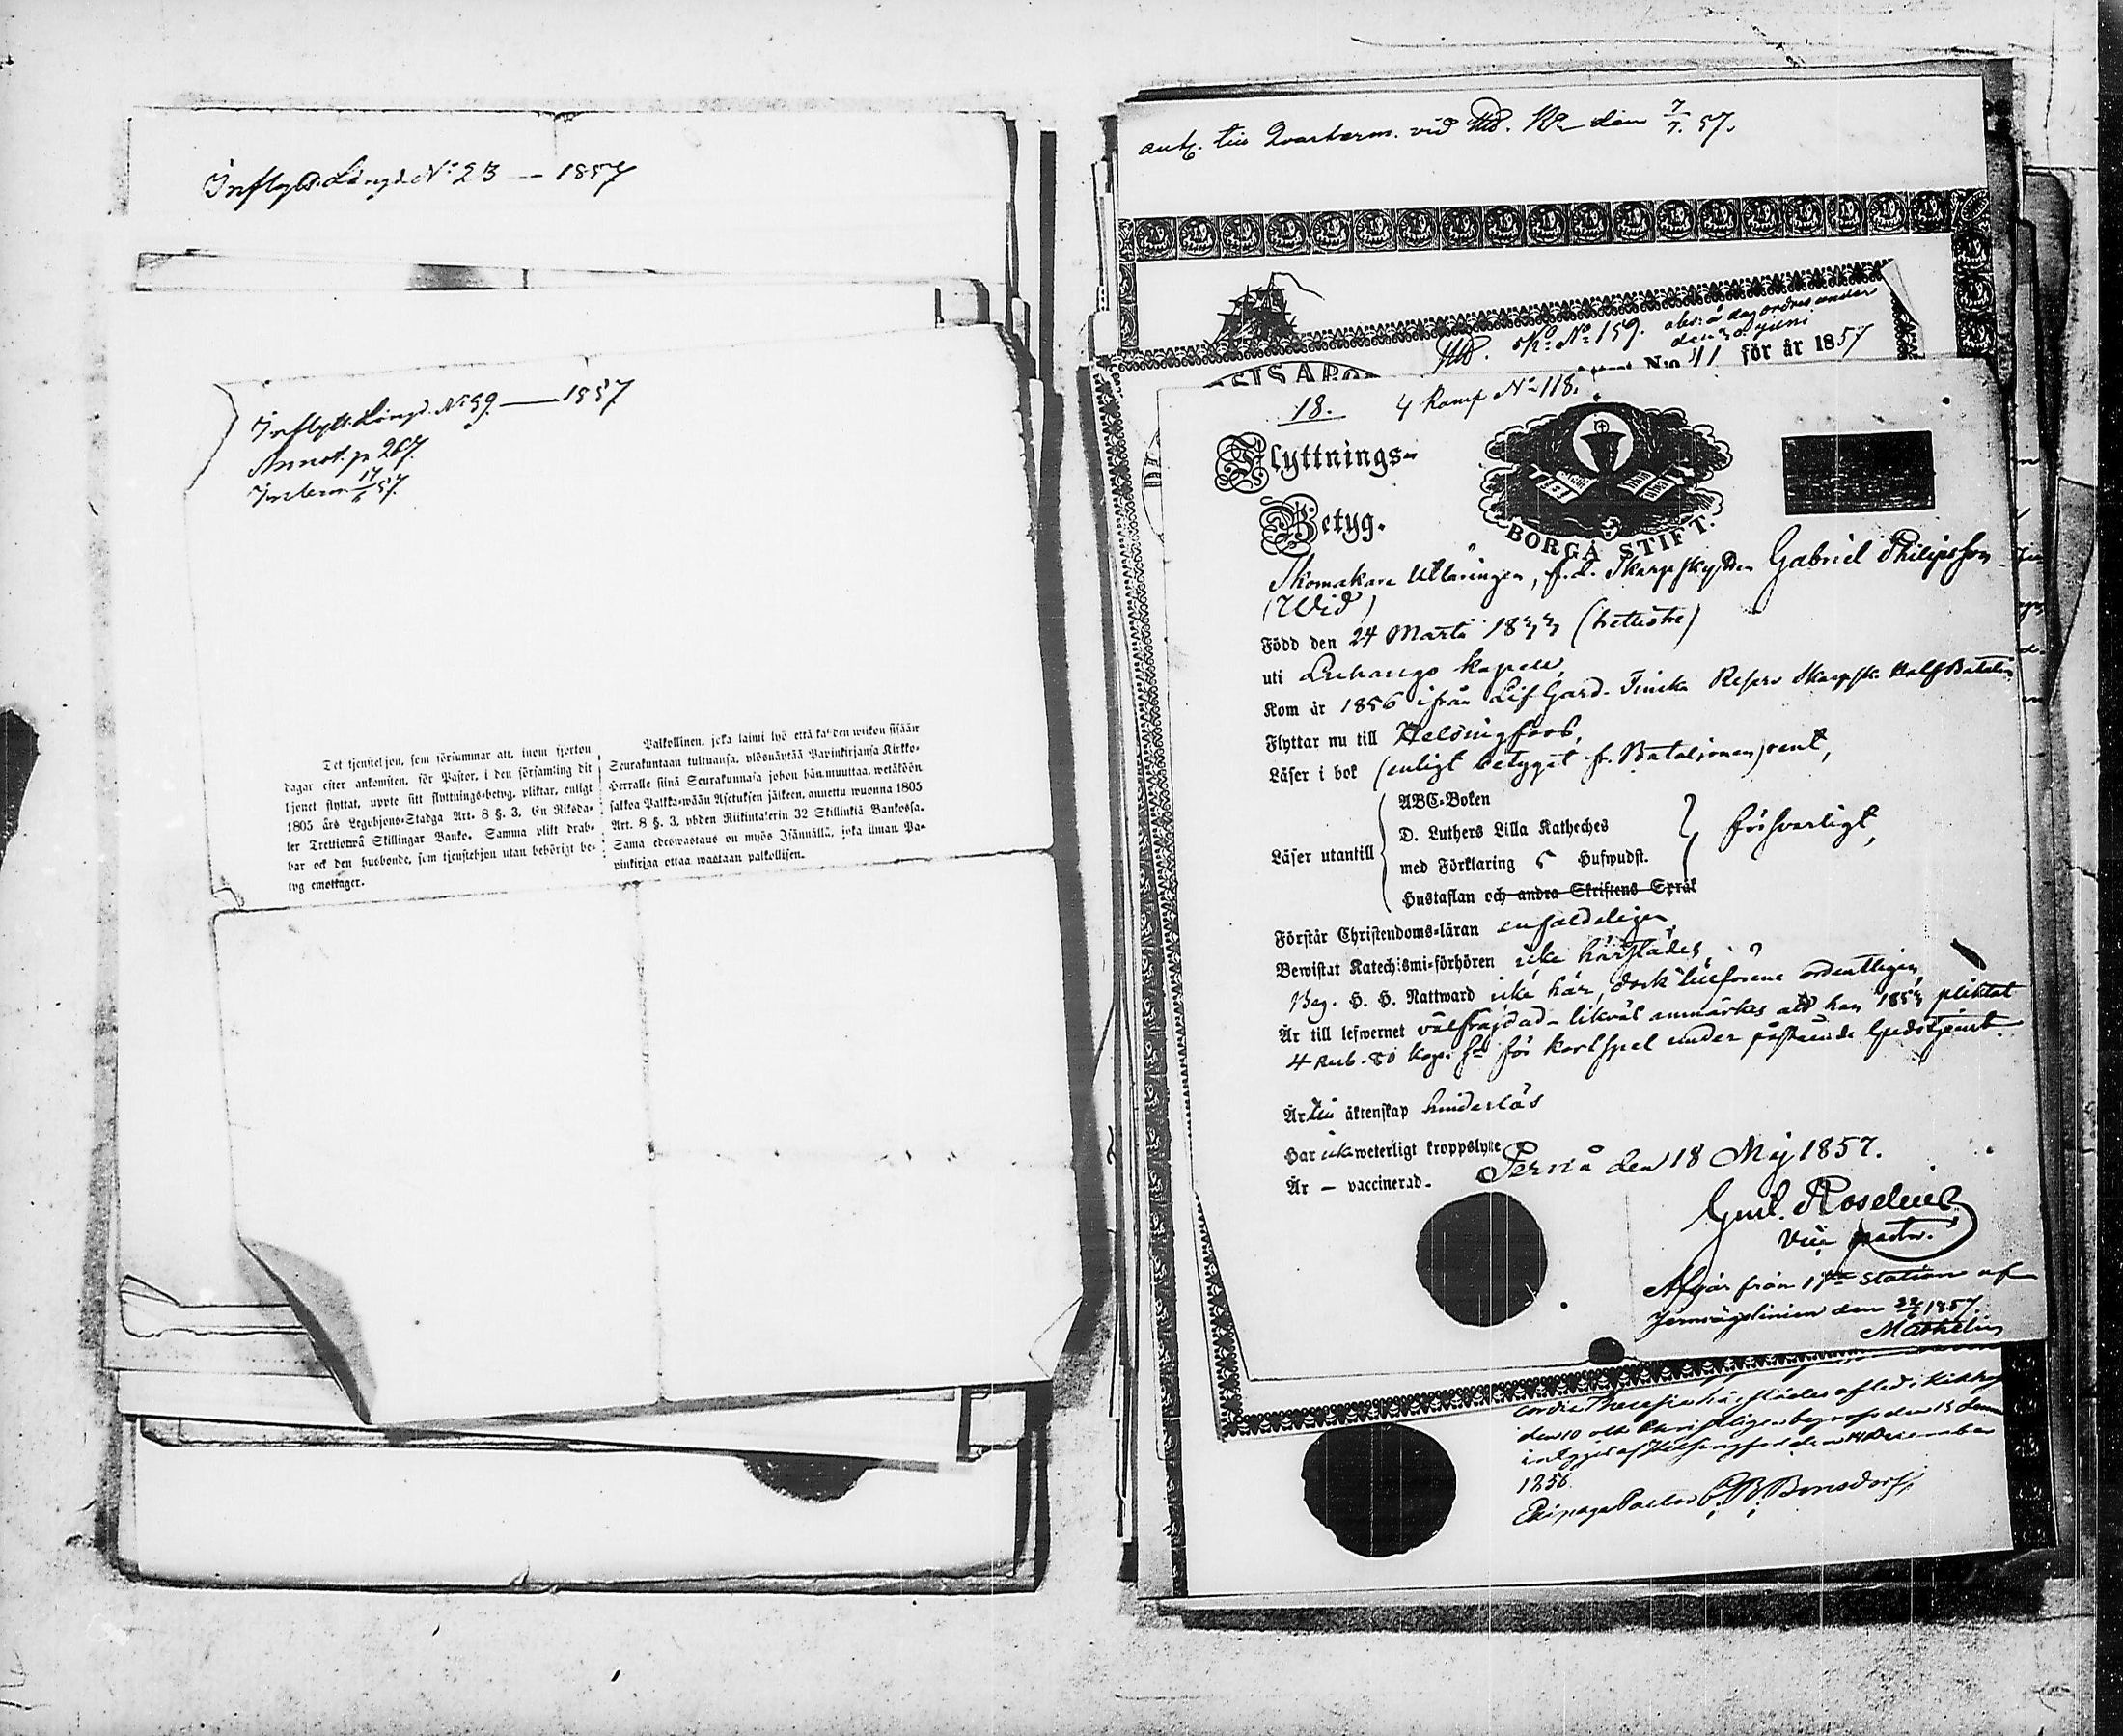 Inflytt. Längd. No 23 — 1857
Inflytt. Längd. No 59 — 1857
Annot. p 267.
17/6 57.
Det tjenstehjon, som försummar att, inom fjorton
dagar efter ankomsten, för Pastor, i den församling dit
tjenet flyttat, uppte sitt flyttnings-betyg, pliktar, enligt
1805 års Legohjons-Stadga Art. 8 §. 3. En Riksda-
ler Trettiotwå Skillingar Banko. Samma plikt drab-
bar ock den husbonde, som tjenstehjon utan behörigt be-
tyg emottager.
Palkollinen, joka laimi lyö että kahden wiikon sisään
Seurakuntaan tultuansa, ylösnäyttää Papinkirjansa Kirkko-
Herralle siinä Seurakunnasa johon hän muuttaa, wetäköön
sakkoa Palkka-wään Asetuksen jälkeen, annettu wuonna 1805
Art. 8 §. 3. yhden Riikintalerin 32 Skillinkiä Bankossa.
Sama edeswastaus on myös Isännällä, joka ilman Pa-
pinkirjaa ottaa wastaan palkollisen.
ant. till Qvarterm. vid den 7/7. 57.
No 159.
N:o 41 för år 1857
18.
4 Komp No 118.
Flyttnings-
Betyg.
BORGÅ STIFT.
Skomakare Utläringen, f.d. Skarpskytten Gabriel Philipsson
(Wid)
Född den 24 Martii 1833 (trettiotre)
uti Luhango kapell,
Kom år 1856 ifrån Lif Gard. Finska Reserv Skarpsk. Half Bataljon
Flyttar nu till Helsingfors,
Läser i bok (enligt betyget fr. Bataljonen) rent,
Läser utantill
ABC-Boken
D. Luthers Lilla Katheches
med Förklaring 5 Hufwudst.
Hustaflan och andra Skriftens Språk
försvarligt,
Förstår Christendoms-läran enfaldeligen
Bewistat Katechismi-förhören icke härstädes,
Beg. H. H. Nattward icke här, dock tillförene ordentligen,
Är till lefwernet välfrejdad - likväl anmärkes att han 1853 pliktat
4 Rub. 80 kop. för kortspel under påstående Gudstjenst.
Är till äktenskap hinderlös
Har icke weterligt kroppslyte
Är — vaccinerad.
Pernå den 18 Maj 1857.
Gust. Roselius
Vice pastor.
Afgår från 17de station af
Jernvägslinien den 22/6 1857.
den 10 och Christeligen begrafs den 13 dennes
intygas af Helsingfors den 14 December
1856.
Ekipage Pastor C. B. Bonsdorff